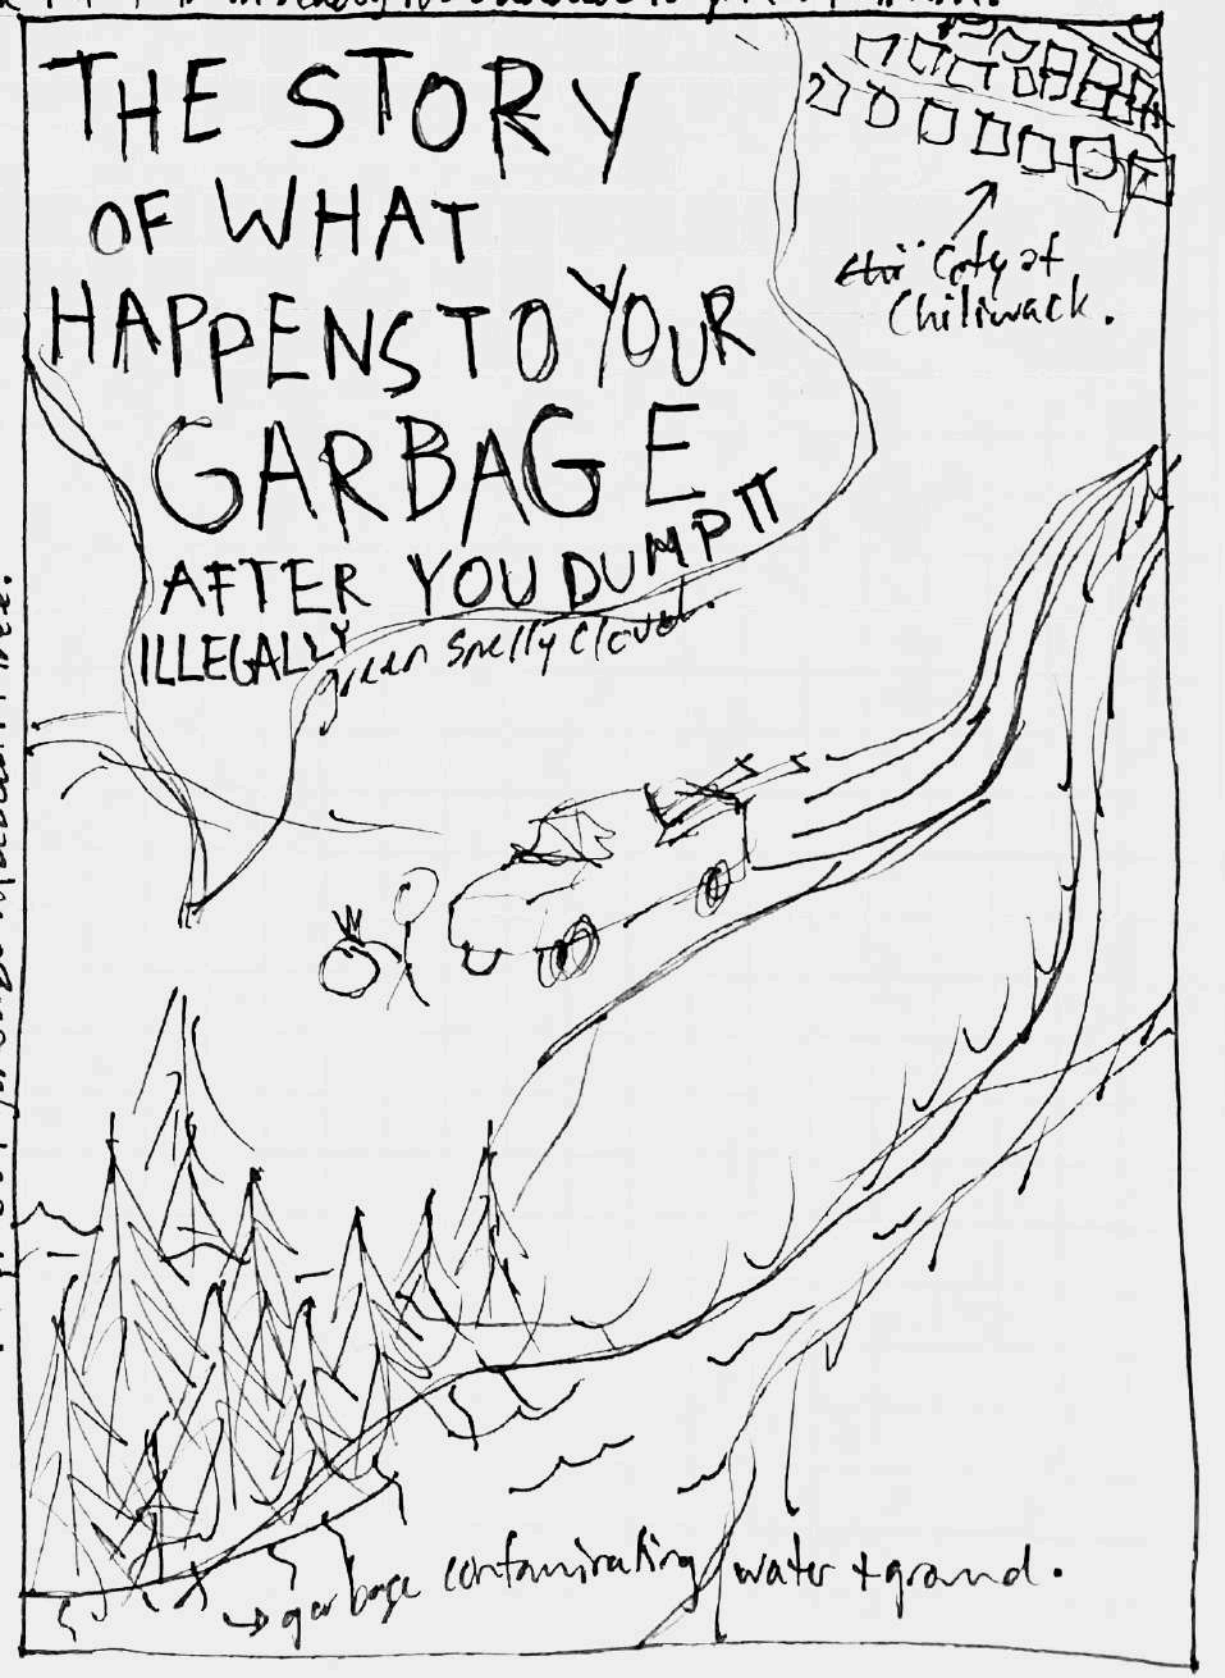 THE STORY
OF WHAT
HAPPENS TO YOUR
GARBAGE
AFTER YOU DUMP IT
ILLEGALLY
green smelly cloud.
City of
Chiliwack.
garbage contaminating water + ground.